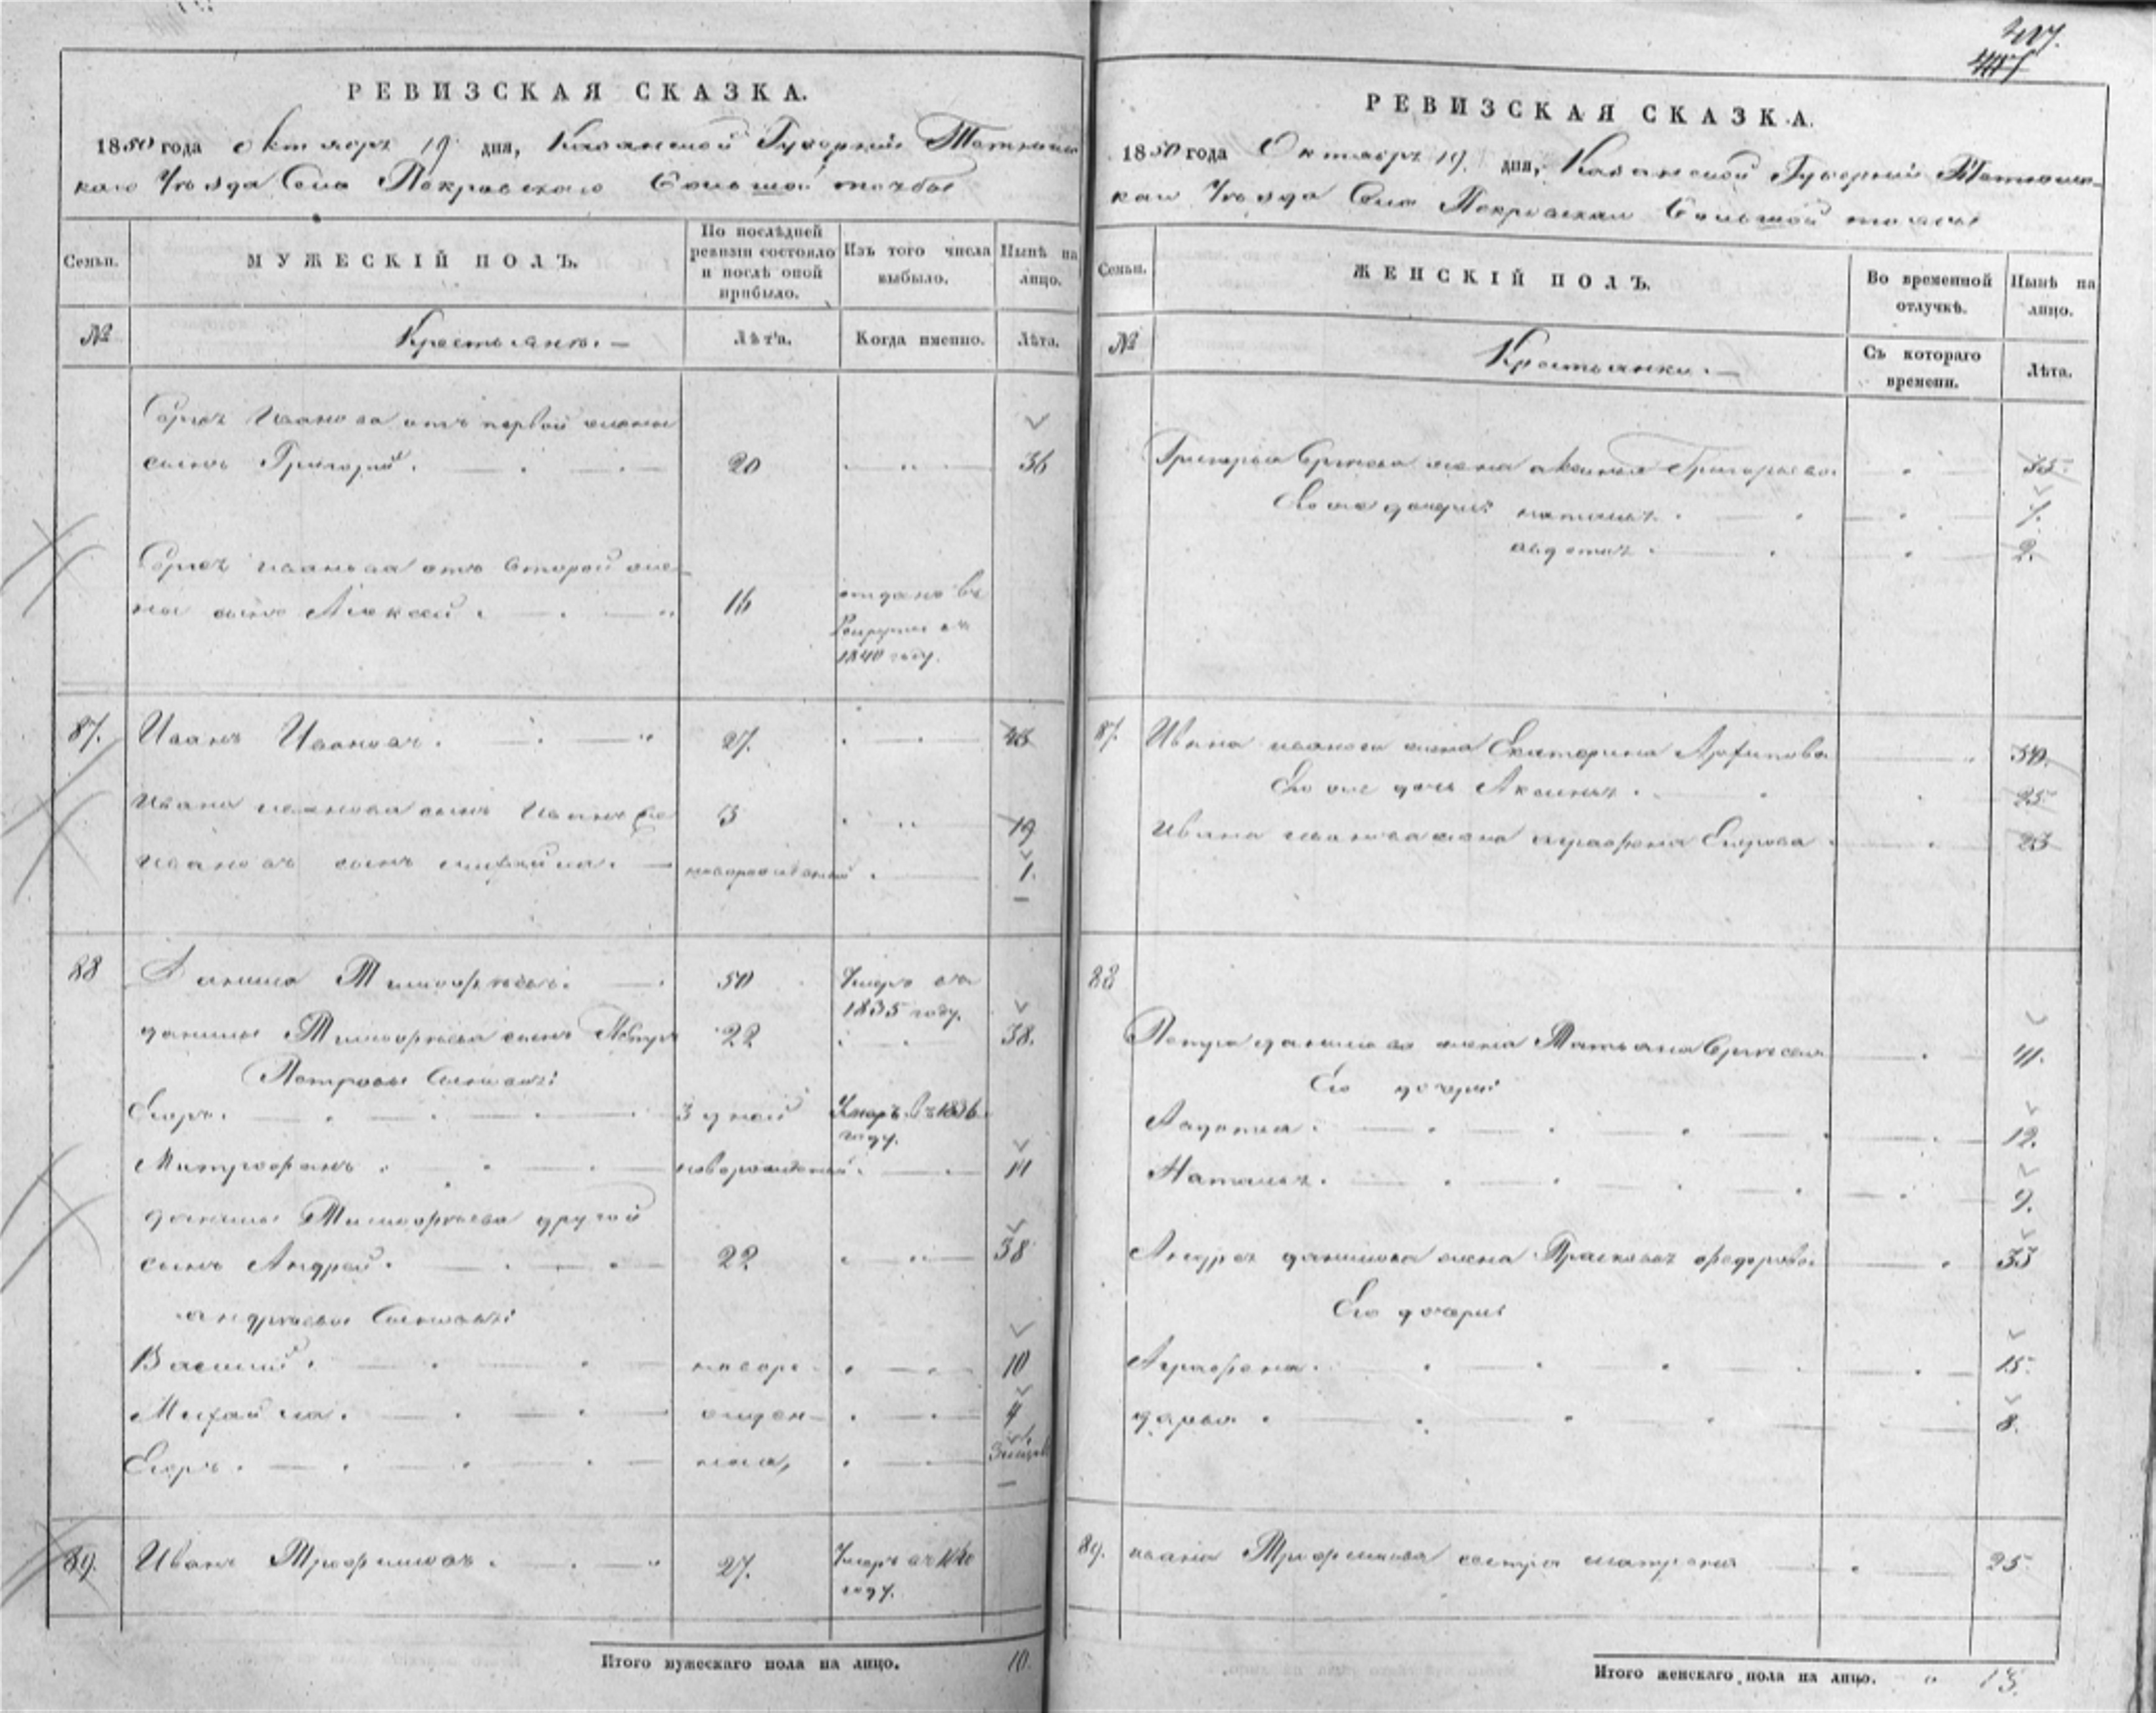 417.
РЕВИЗСКАЯ СКАЗКА.
1850 года октября 19 дня, Казанской Губернии Тетюшс-
каго Уѣзда Села Покровскаго Большой тожъ
Семьи.
МУЖЕСКІЙ ПОЛЪ.
По послѣдней ревизіи состояло и послѣ оной прибыло.
Изъ того числа выбыло.
Нынѣ на лицо.
№
Крестьяне. —
Лѣта.
Когда именно.
Лѣта.
Сергѣя Иванова отъ первой жены
сынъ Григорій. 20 36
Сергѣя Иванова отъ второй же-
ны сынъ Алексей. 16 отданъ въ
Рекруты въ
1840 году.
87. Иванъ Ивановъ. 27. 43
Ивана Иванова сынъ Иванъ 3 19
Ивановъ сынъ Михайла. новорожденный 1.
88 Данила Тимофѣевъ. 50 Умеръ въ
1835 году.
Данилы Тимофѣева сынъ Петръ 22 38.
Петровы Сыновья:
Егоръ. 3 дней Умеръ въ 1836
году.
Митрофанъ. новорожденный 14
Данилы Тимофѣева другой
сынъ Андрей. 22 38
Андреевы Сыновья:
Василий. новоро- 10
Михайла. жден- 4
Егоръ. ные,
89. Иванъ Трофимовъ. 27. Умеръ въ 1840
году.
Итого мужескаго пола на лицо. 10.
РЕВИЗСКАЯ СКАЗКА.
1850 года Октября 19. дня, Казанской Губернии Тетюшс-
каго Уѣзда Села Покровскаго Большой тожъ
Семьи.
ЖЕНСКІЙ ПОЛЪ.
Во временной отлучкѣ.
Нынѣ на лицо.
№
Крестьянки. —
Съ котораго времени.
Лѣта.
Григорья Сергѣева жена Аксинья Григорьева 35.
Его же дочери: Наталья. 7.
Авдотья. 2.
87. Ивана Иванова жена Екатерина Архипова 50.
Его же дочь Аксинья. 25.
Ивана Иванова жена Аграфена Егорова. 23
88
Петра Данилова жена Татьяна Сергеева 41.
Его дочери:
Авдотья. 12.
Наталья. 9.
Андрея Данилова жена Прасковья Федорова 33
Его дочери:
Аграфена. 15.
Дарья. 8.
89. Ивана Трофимова сестра Матрена 25
Итого женскаго пола на лицо. 13.